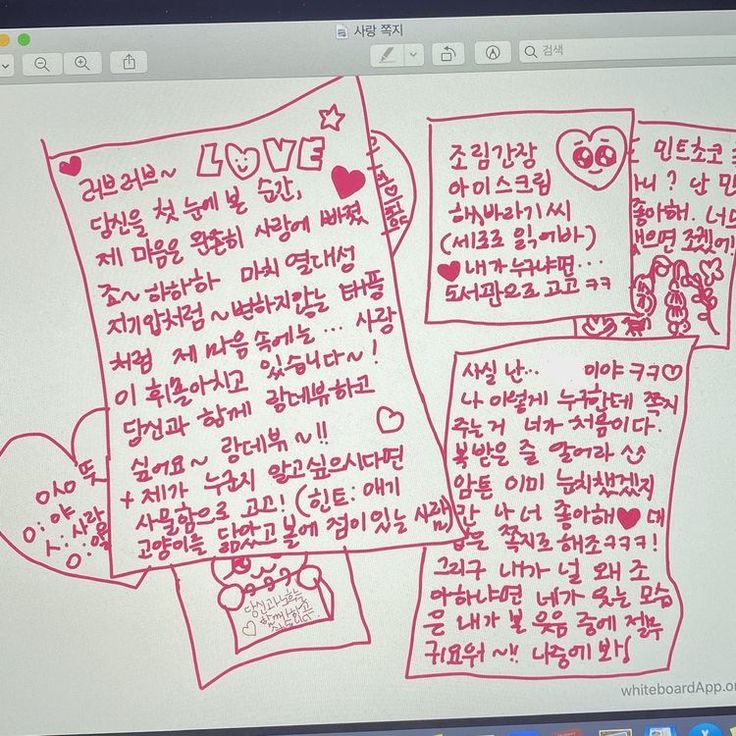 사랑 쪽지
검색
LOVE
러브러브~
당신을 첫 눈에 본 순간,
제 마음은 완존히 사랑에 빠졌
죠~ 하하하 마치 열대성
저기압처럼 ~ 변하지않는 태풍
처럼 제 마음 속에는... 사랑
이 휘몰아치고 있습니다~!
당신과 함께 랑데뷰하고
싶어요~ 랑데뷰~!!
+ 제가 누군지 알고싶으시다면
사물함으로 고고! (힌트: 애기
고양이를 닮았고 볼에 점이 있는 사람)
조림간장
아이스크림
해바라기씨
(세로로 읽어봐)
내가 누구냐면...
도서관으로 고고 ㅋㅋ
민트초코
니? 난 민
좋아해. 너도
했으면 좋겠어!
사실 난... 미야 ㅋㅋ
나 이렇게 누구한테 쪽지
주는거 너가 처음이다.
복받은 줄 알어라
암튼 이미 눈치챘겠지
만 나 너 좋아해 대
답은 쪽지로 해조ㅋㅋㅋ!
그리구 내가 널 왜 조
아하냐면 네가 웃는 모습
은 내가 본 웃음 중에 젤루
귀요워~!! 나중에 봐!
이상 뜻
이: 야
ㅅ: 사랑
당신과
whiteboardApp.or